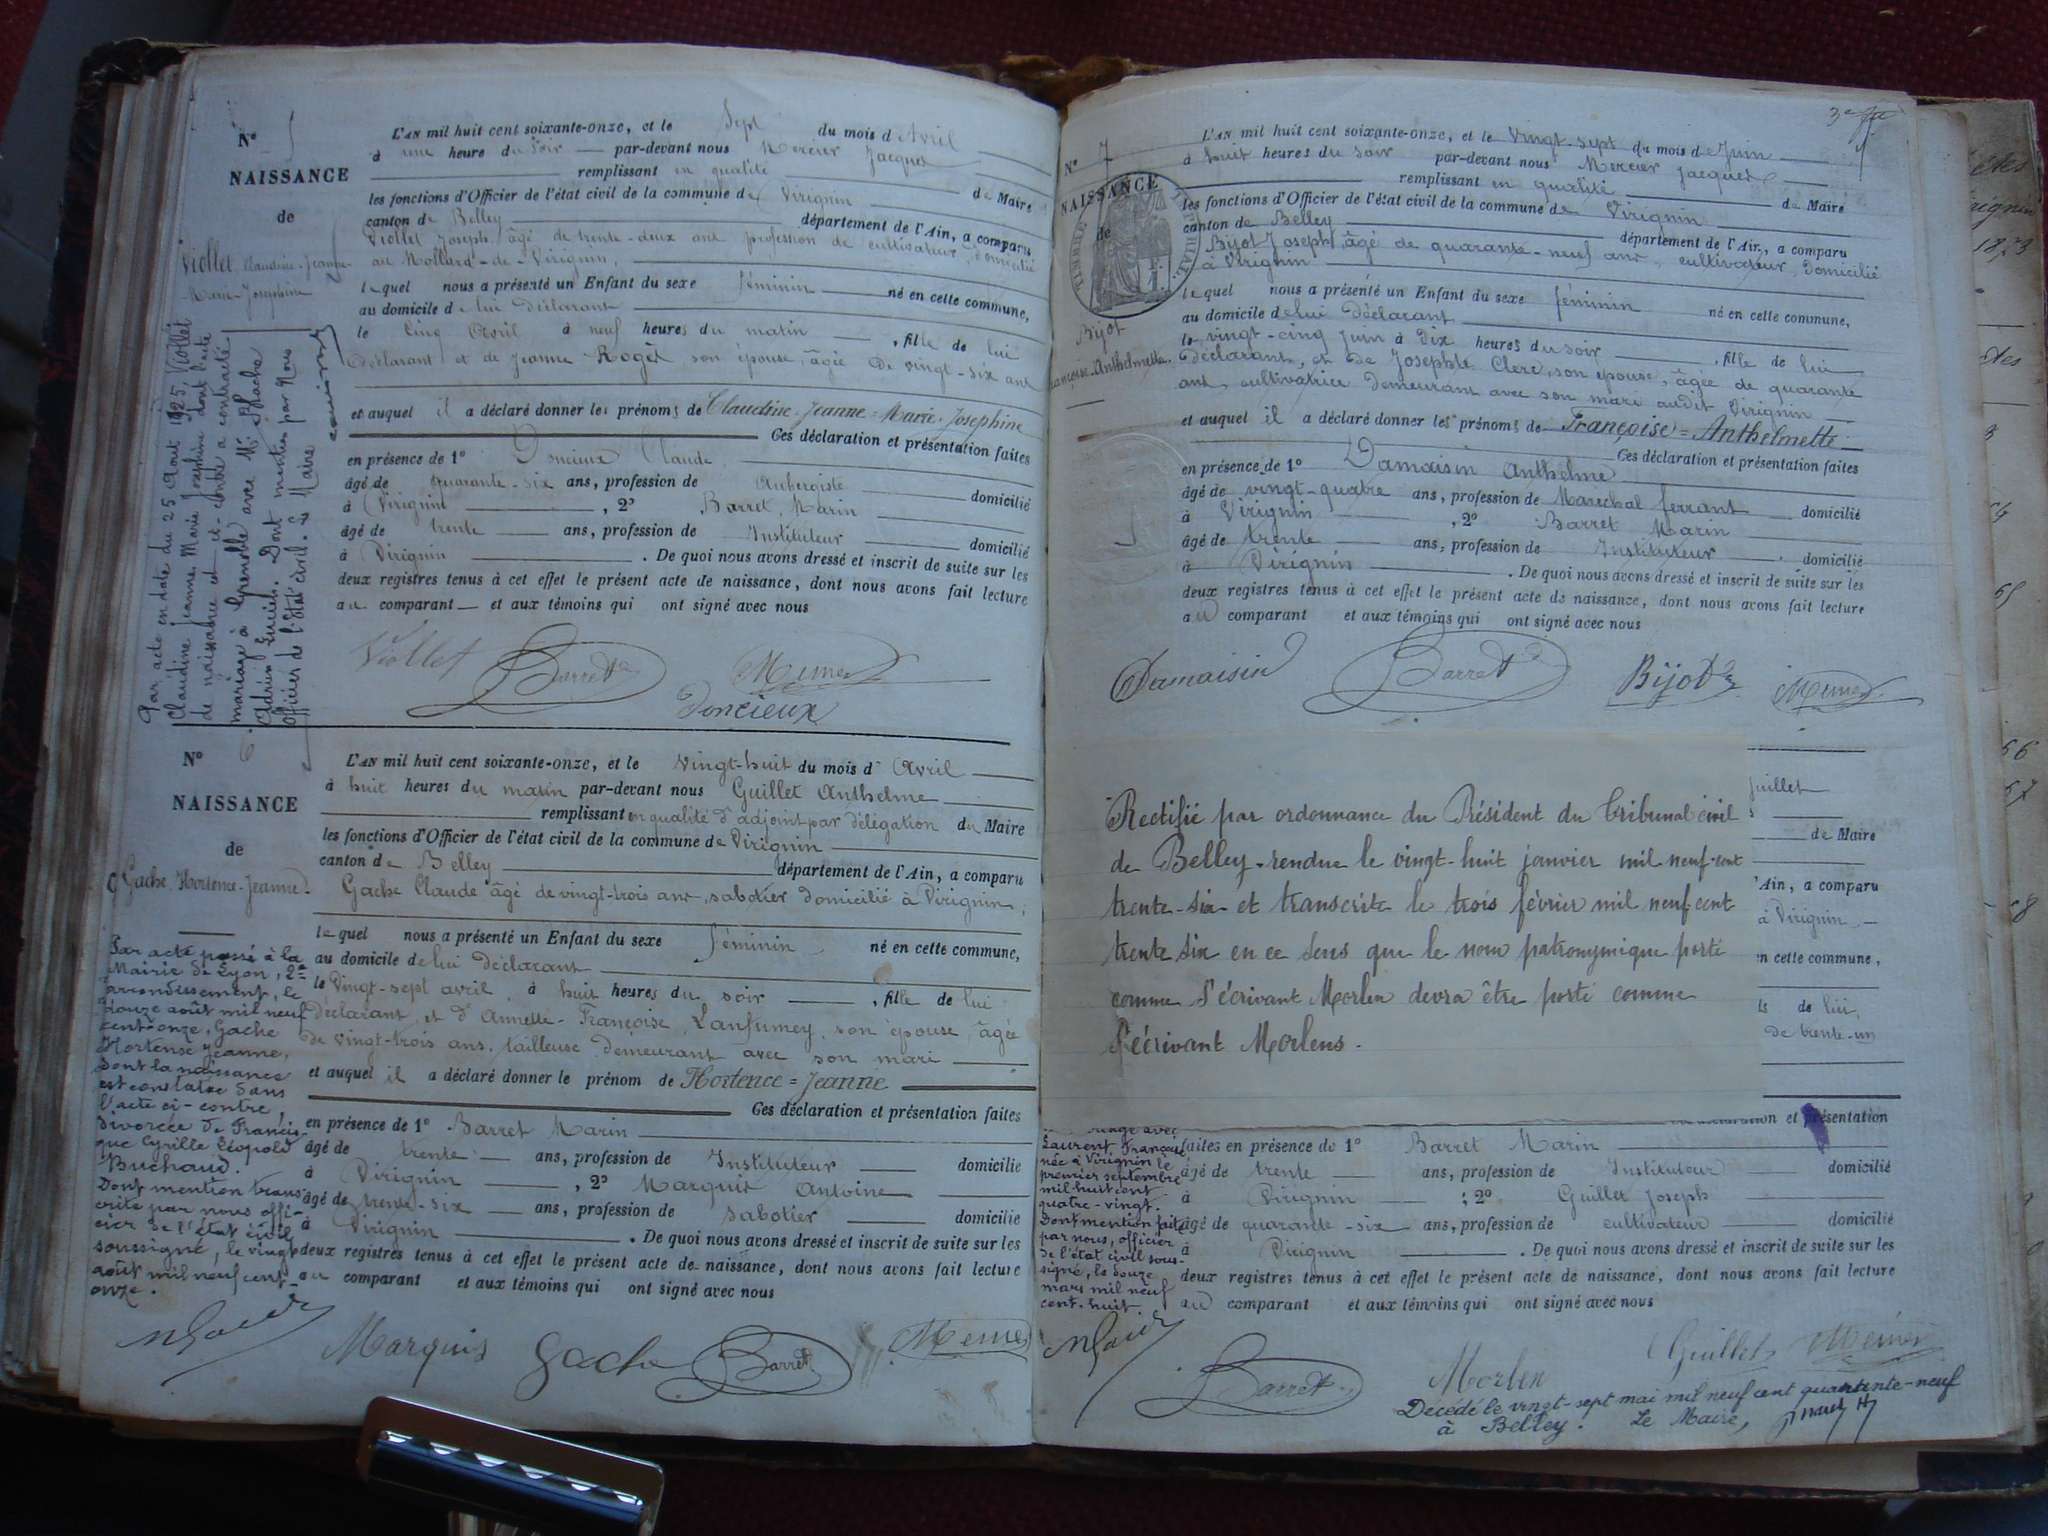 N° 5
NAISSANCE
de
Viollet, Claudine-Jeanne-
Marie-Josephine
L'AN mil huit cent soixante-onze, et le Sept du mois d'Avril
à une heure du Soir par-devant nous Mercier Jacques
remplissant en qualité de Maire
les fonctions d'Officier de l'état civil de la commune de Virignin
canton de Belley département de l'Ain, a comparu
Viollet Joseph, âgé de trente-deux ans profession de cultivateur, domicilié
au Mollard-de-Virignin,
lequel nous a présenté un Enfant du sexe féminin né en cette commune,
au domicile de lui déclarant
le Cinq Avril à neuf heures du matin, fille de lui
déclarant et de Jeanne Roget son épouse âgée de vingt-six ans
et auquel il a déclaré donner les prénoms de Claudine-Jeanne=Marie-Josephine
Ces déclaration et présentation faites
en présence de 1° Doncieux Claude
âgé de quarante-six ans, profession de Aubergiste domicilié
à Virignin, 2° Barret, Marin
âgé de trente ans, profession de Instituteur domicilié
à Virignin. De quoi nous avons dressé et inscrit de suite sur les
deux registres tenus à cet effet le présent acte de naissance, dont nous avons fait lecture
au comparant et aux témoins qui ont signé avec nous
Viollet Barret Doncieux
Par acte en date du 25 Aout 1925, Viollet
Claudine Jeanne, Marie Josephine dont l'acte
de naissance est ci-contre a contracté
mariage à Grenoble avec Mr Blache
Adrien Lucien. Dont mention par Nous
Officier de l'Etat civil. Le Maire
N° 6
NAISSANCE
de
Gache, Hortence-Jeanne.
L'AN mil huit cent soixante-onze, et le vingt-huit du mois d'Avril
à huit heures du matin par-devant nous Guillet Anthelme
remplissant en qualité d'adjoint par délégation du Maire
les fonctions d'Officier de l'état civil de la commune de Virignin
canton de Belley département de l'Ain, a comparu
Gache Claude âgé de vingt-trois ans, sabotier domicilié à Virignin,
lequel nous a présenté un Enfant du sexe féminin né en cette commune,
au domicile de lui déclarant
le Vingt-sept avril, à huit heures du soir, fille de lui
déclarant et d'Annette-Françoise Lanfumey, son épouse âgée
de vingt-trois ans, tailleuse demeurant avec son mari
et auquel il a déclaré donner le prénom de Hortence=Jeanne
Ces déclaration et présentation faites
en présence de 1° Barret Marin
âgé de trente ans, profession de Instituteur domicilié
à Virignin, 2° Marquis Antoine
âgé de trente-six ans, profession de sabotier domicilié
à Virignin. De quoi nous avons dressé et inscrit de suite sur les
deux registres tenus à cet effet le présent acte de naissance, dont nous avons fait lecture
au comparant et aux témoins qui ont signé avec nous
Marquis Gache Barret
Par acte passé à la
Mairie de Lyon, 2e
arrondissement, le
douze août mil neuf
cent-onze, Gache
Hortense Jeanne,
dont la naissance
est constatée dans
l'acte ci-contre,
divorcée de Francis-
que Cyrille Léopold
Buchaud.
Dont mention trans-
crite par nous offi-
cier de l'état civil
soussigné, le vingt
août mil neuf cent-
onze.
N° 7
NAISSANCE
de
Bijot
Françoise-Anthelmette
L'AN mil huit cent soixante-onze, et le Vingt-sept du mois de Juin
à huit heures du soir par-devant nous Mercier Jacques
remplissant en qualité de Maire
les fonctions d'Officier de l'état civil de la commune de Virignin
canton de Belley département de l'Ain, a comparu
Bijot Joseph, âgé de quarante-neuf ans, cultivateur, domicilié
à Virignin
lequel nous a présenté un Enfant du sexe féminin né en cette commune,
au domicile de lui déclarant
le vingt-cinq Juin à Dix heures du soir, fille de lui
déclarant, et de Josephte Clerc, son épouse, âgée de quarante
ans, cultivatrice demeurant avec son mari audit Virignin
et auquel il a déclaré donner les prénoms de Françoise=Anthelmette
Ces déclaration et présentation faites
en présence de 1° Damaisin Anthelme
âgé de vingt-quatre ans, profession de Maréchal ferrant domicilié
à Virignin, 2° Barret Marin
âgé de trente ans, profession de Instituteur domicilié
à Virignin. De quoi nous avons dressé et inscrit de suite sur les
deux registres tenus à cet effet le présent acte de naissance, dont nous avons fait lecture
au comparant et aux témoins qui ont signé avec nous
Damaisin Barret Bijot
Rectifié par ordonnance du Président du Tribunal civil
de Belley rendue le vingt-huit janvier mil neuf-cent
trente-six et transcrite le trois février mil neuf cent
trente six en ce sens que le nom patronymique porté
comme s'écrivant Morlen devra être porté comme
s'écrivant Morlens.
Juillet
de Maire
l'Ain, a comparu
à Virignin
en cette commune,
de lui,
de trente-un
déclaration et présentation
faites en présence de 1° Barret Marin
âgé de trente ans, profession de Instituteur domicilié
à Virignin, 2° Guillet Joseph
âgé de quarante-six ans, profession de cultivateur domicilié
à Virignin. De quoi nous avons dressé et inscrit de suite sur les
deux registres tenus à cet effet le présent acte de naissance, dont nous avons fait lecture
au comparant et aux témoins qui ont signé avec nous
avec
Laurent, Françoise
née à Virignin le
premier septembre
mil-huit cent
quatre-vingt.
Dont mention faite
par nous, officier
de l'état civil sous-
signé, le douze
mars mil neuf
cent-huit.
Barret Morlen Guillet
Décédé le vingt-sept mai mil neuf cent quarante-neuf
à Belley. Le Maire,